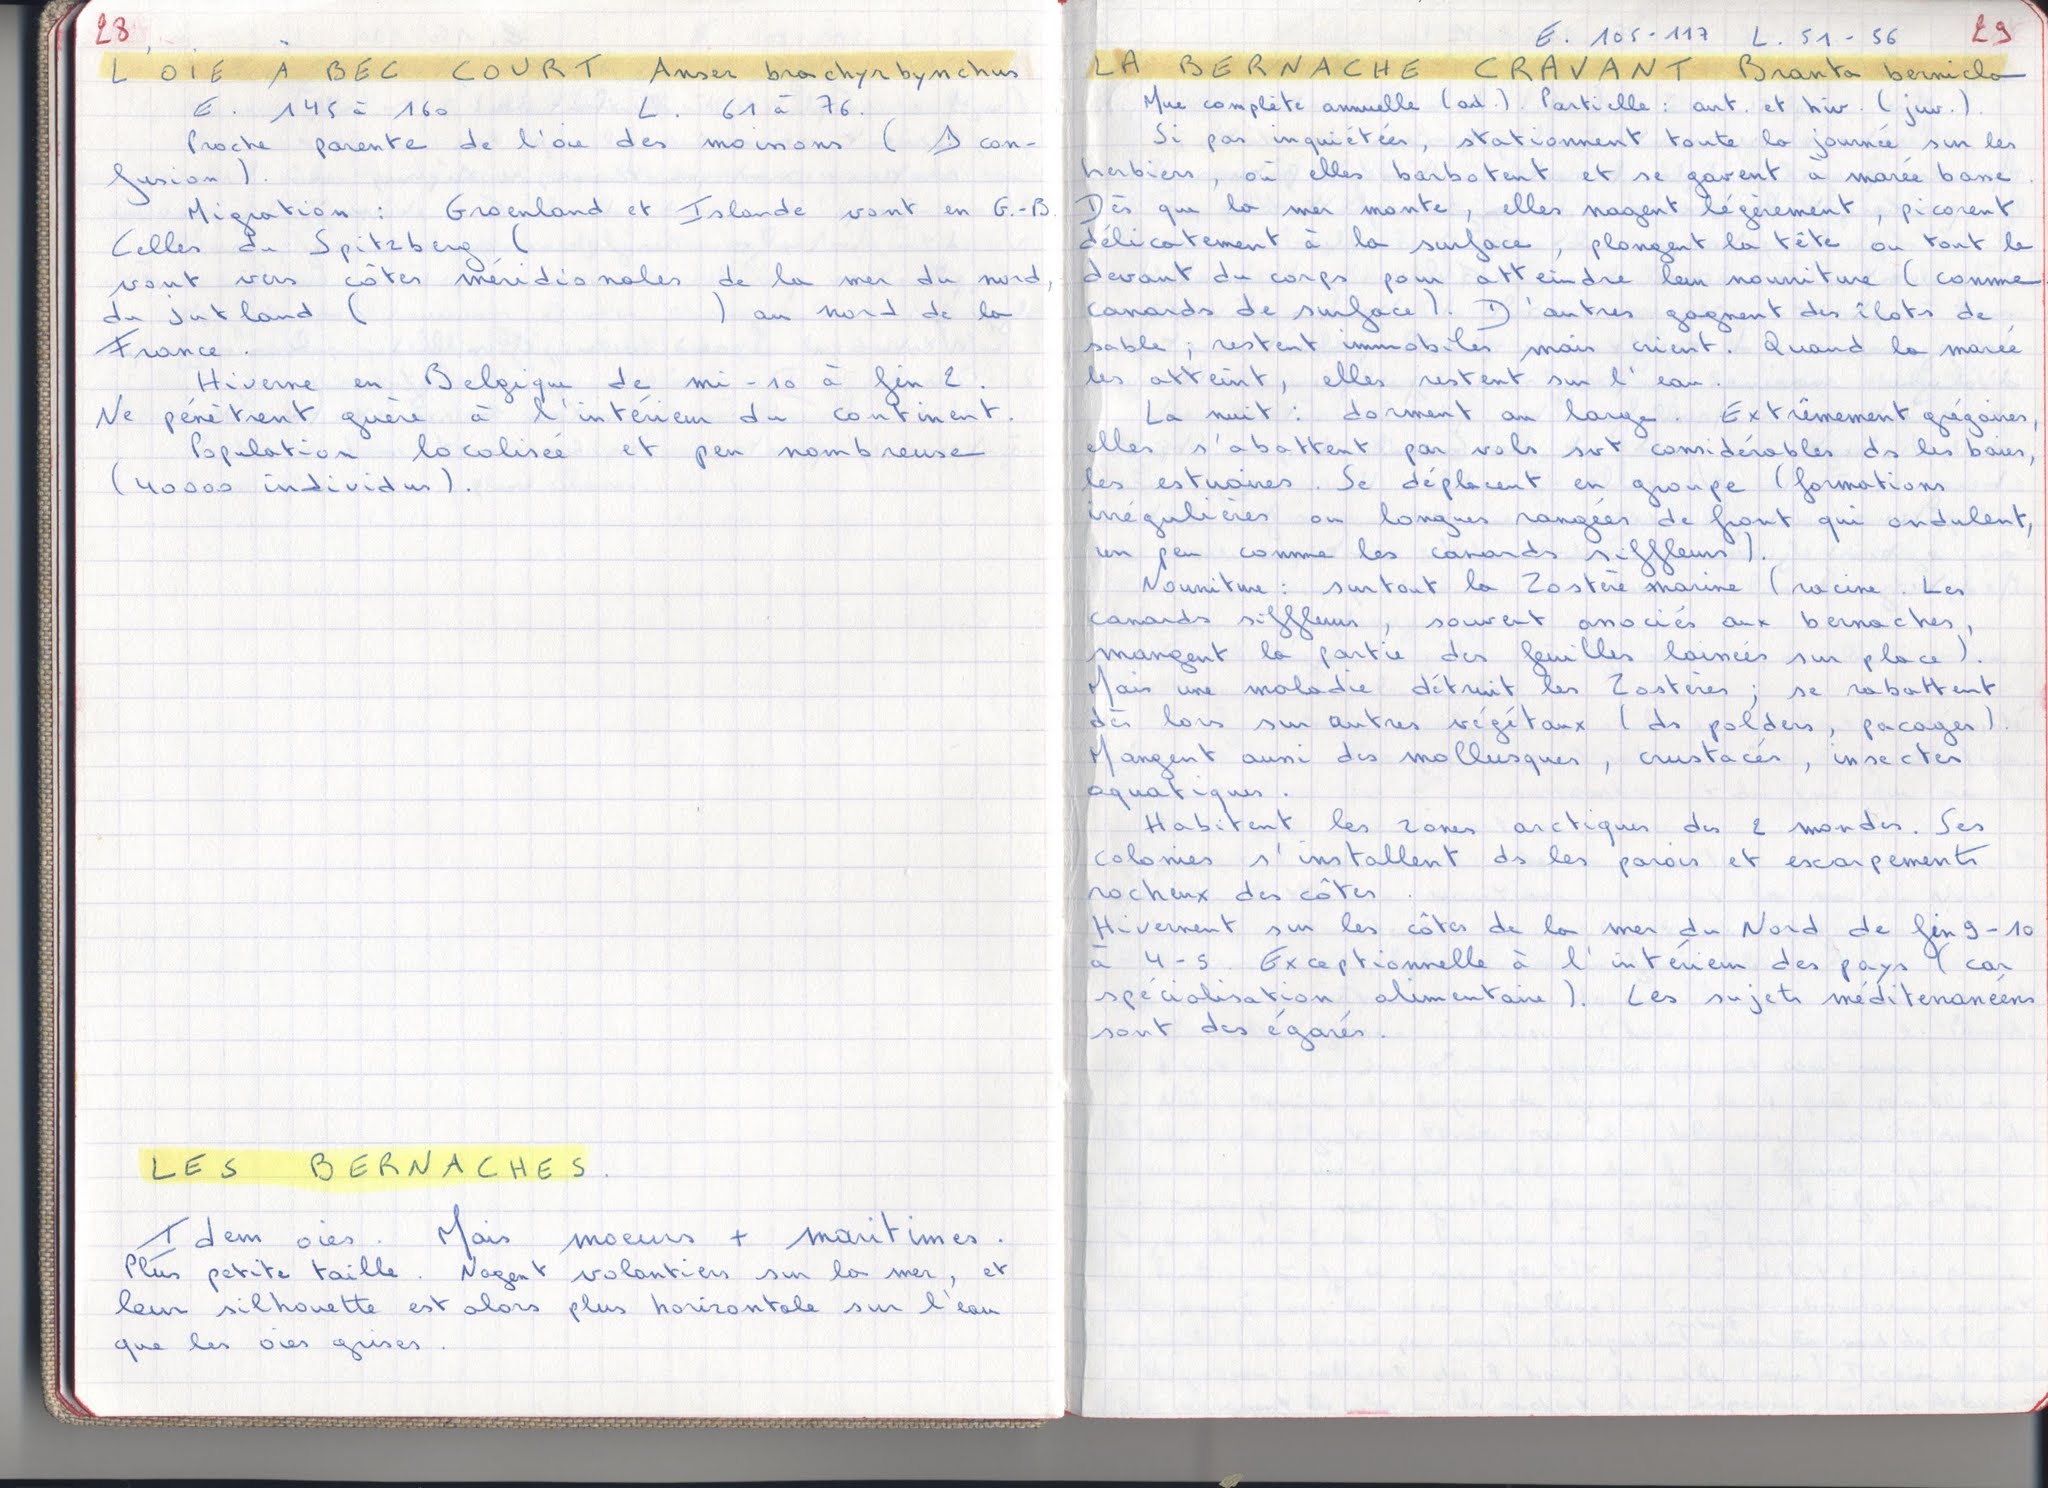 28
L'OIE À BEC COURT Anser brachyrhynchus
E. 145 à 160 L. 61 à 76.
Proche parente de l'oie des moissons ( con-
fusion ).
Migration : Groenland et Islande vont en G.-B.
Celles du Spitzberg (
vont vers côtes méridionales de la mer du nord,
du Jutland ( ) au nord de la
France.
Hiverne en Belgique de mi-10 à fin 2.
Ne pénètrent guère à l'intérieur du continent.
Population localisée et peu nombreuse
(40000 individus).
LES BERNACHES.
Idem oies. Mais moeurs + maritimes.
Plus petite taille. Nagent volontiers sur la mer, et
leur silhouette est alors plus horizontale sur l'eau
que les oies grises.
E. 105-117 L. 51-56 29
LA BERNACHE CRAVANT Branta bernicla
Mue complète annuelle (ad.). Partielle : aut. et hiv. (juv.).
Si pas inquiétées, stationnent toute la journée sur les
herbiers, où elles barbotent et se gavent à marée basse.
Dès que la mer monte, elles nagent légèrement, picorent
délicatement à la surface, plongent la tête ou tout le
devant du corps pour atteindre leur nourriture (comme
canards de surface). D'autres gagnent des îlots de
sable ; restent immobiles mais crient. Quand la marée
les atteint, elles restent sur l'eau.
La nuit : dorment au large. Extrêmement grégaires,
elles s'abattent par vols svt considérables ds les baies,
les estuaires. Se déplacent en groupe (formations
irrégulières ou longues rangées de front qui ondulent,
un peu comme les canards siffleurs).
Nourriture : surtout la Zostère marine (racine. Les
canards siffleurs, souvent associés aux bernaches,
mangent la partie des feuilles laissées sur place).
Mais une maladie détruit les Zostères ; se rabattent
dès lors sur autres végétaux (ds polders, pacages).
Mangent aussi des mollusques, crustacés, insectes
aquatiques.
Habitent les zones arctiques des 2 mondes. Ses
colonies s'installent ds les parois et escarpements
rocheux des côtes.
Hivernent sur les côtes de la mer du Nord de fin 9-10
à 4-5. Exceptionnelle à l'intérieur des pays (car
spécialisation alimentaire). Les sujets méditerranéens
sont des égarés.